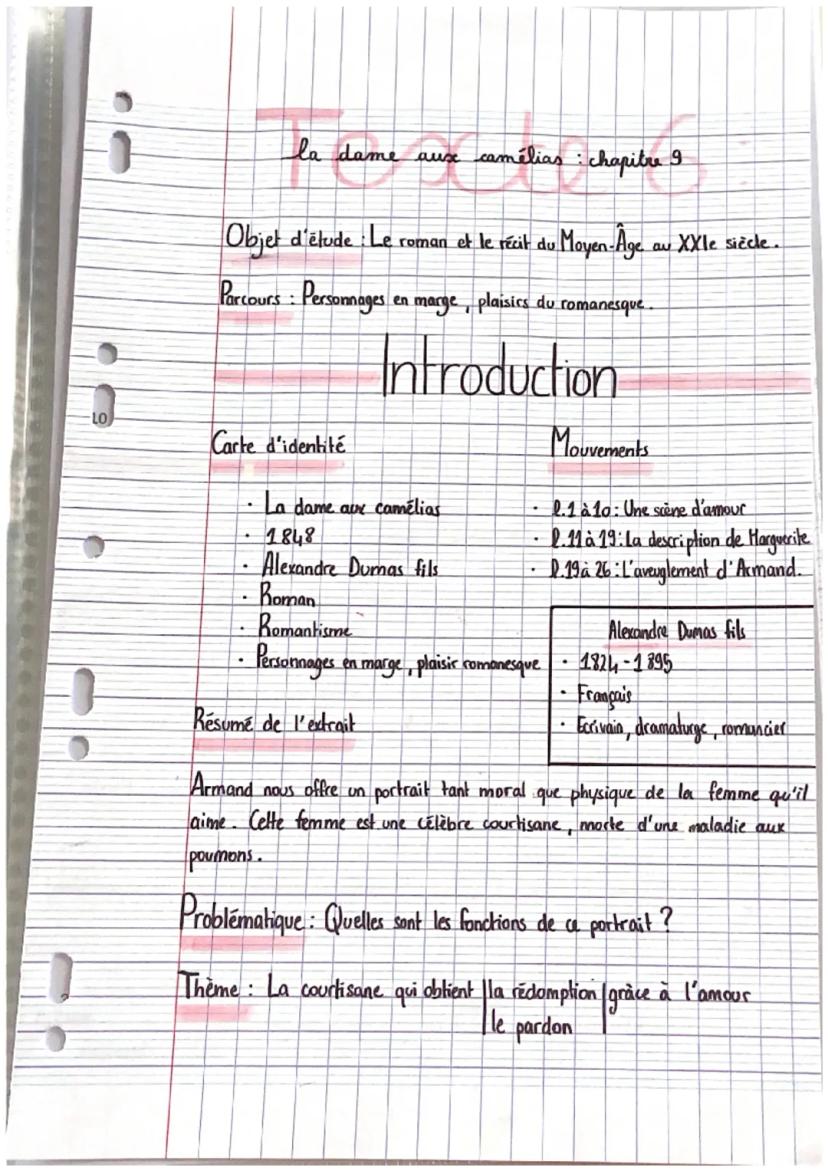 Texte 6:
La dame aux camélias : chapitre 9
Objet d'étude : Le roman et le récit du Moyen-Âge au XXIe siècle.
Parcours : Personnages en marge, plaisirs du romanesque.
Introduction
LO
Carte d'identité
· La dame aux camélias
· 1848
· Alexandre Dumas fils
· Roman
· Romantisme
· Personnages en marge, plaisir romanesque
Mouvements
· l.1 à 10 : Une scène d'amour
· l.11 à 19 : La description de Marguerite
· l.19 à 26 : L'aveuglement d'Armand.
Alexandre Dumas fils
· 1824-1895
· Français
· Ecrivain, dramaturge, romancier
Résumé de l'extrait
Armand nous offre un portrait tant moral que physique de la femme qu'il
aime. Cette femme est une célèbre courtisane, morte d'une maladie aux
poumons.
Problématique : Quelles sont les fonctions de ce portrait ?
Thème : La courtisane qui obtient la rédomption grâce à l'amour
le pardon